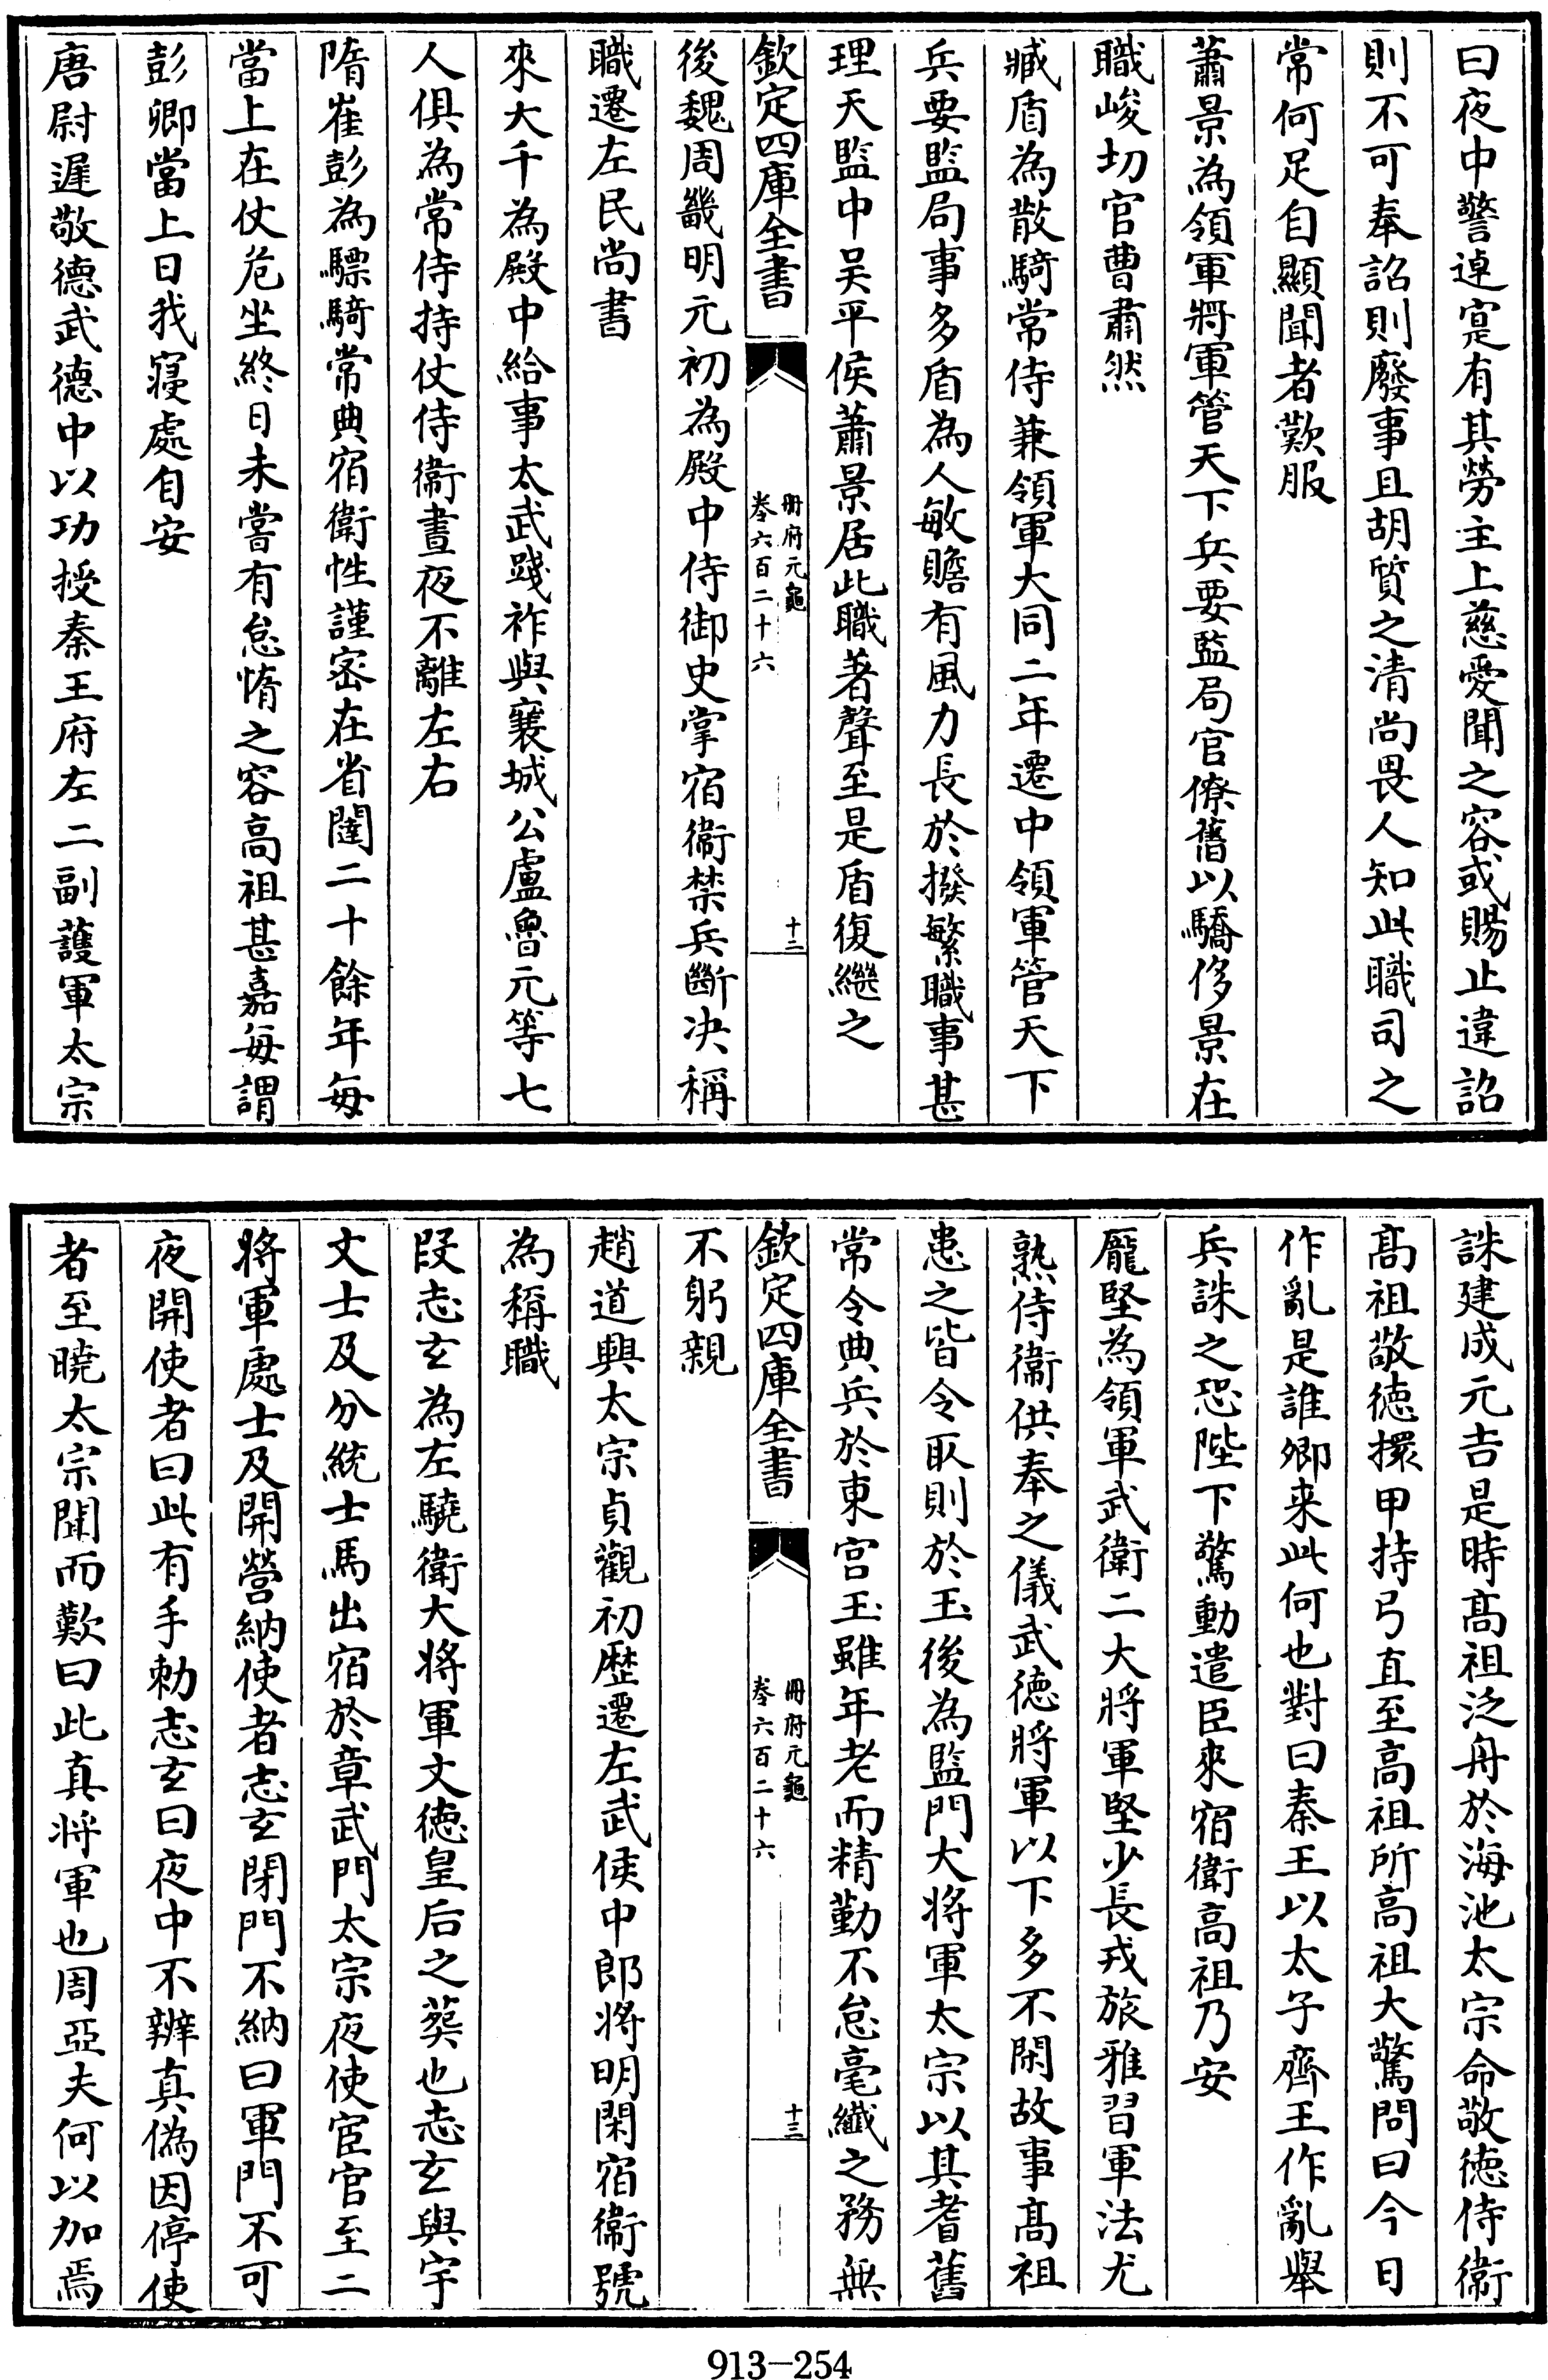 曰夜中警逴寔有其勞主上慈愛聞之容或賜止違詔
則不可奉詔則廢事且胡質之清尚畏人知此職司之
常何足自顯聞者歎服
蕭景為領軍將軍管天下兵要監局官僚舊以驕侈景在
職峻切官曹肅然
臧盾為散騎常侍兼領軍大同二年遷中領軍管天下
兵要監局事多盾為人敏贍有風力長於撥繁職事甚
理天監中吴平侯蕭景居此職著聲至是盾復繼之
欽定四庫全書
冊府元龜
卷六百二十六
十二
後魏周畿明元初為殿中侍御史掌宿衞禁兵斷决稱
職遷左民尚書
來大千為殿中給事太武踐祚與襄城公盧魯元等七
人俱為常侍持仗侍衞晝夜不離左右
隋崔彭為驃騎常典宿衛性謹密在省闥二十餘年每
當上在仗危坐終日未嘗有怠惰之容高祖甚嘉每謂
彭卿當上日我寢處自安
唐尉遲敬德武德中以功授秦王府左二副護軍太宗
誅建成元吉是時髙祖泛舟於海池太宗命敬徳侍衞
髙祖敬徳擐甲持弓直至高祖所高祖大驚問曰今日
作亂是誰卿来此何也對曰秦王以太子齊王作亂舉
兵誅之恐陛下驚動遣臣來宿衛高祖乃安
龎堅為領軍武衛二大將軍堅少長戎旅雅習軍法尤
熟侍衞供奉之儀武徳將軍以下多不閑故事髙祖
患之皆令取則於玉後為監門大将軍太宗以其耆舊
常令典兵於東宫玉雖年老而精勤不怠毫纎之務無
欽定四庫全書
冊府元龜
卷六百二十六
十三
不躬親
趙道興太宗貞觀初歴遷左武侯中郎将明閑宿衞號
為稱職
段志玄為左驍衛大將軍文徳皇后之葬也志玄與宇
文士及分統士馬出宿於章武門太宗夜使宦官至二
將軍處士及開營納使者志玄閉門不納曰軍門不可
夜開使者曰此有手勅志玄曰夜中不辨真偽因停使
者至曉太宗聞而歎曰此真将軍也周亞夫何以加焉
913-254